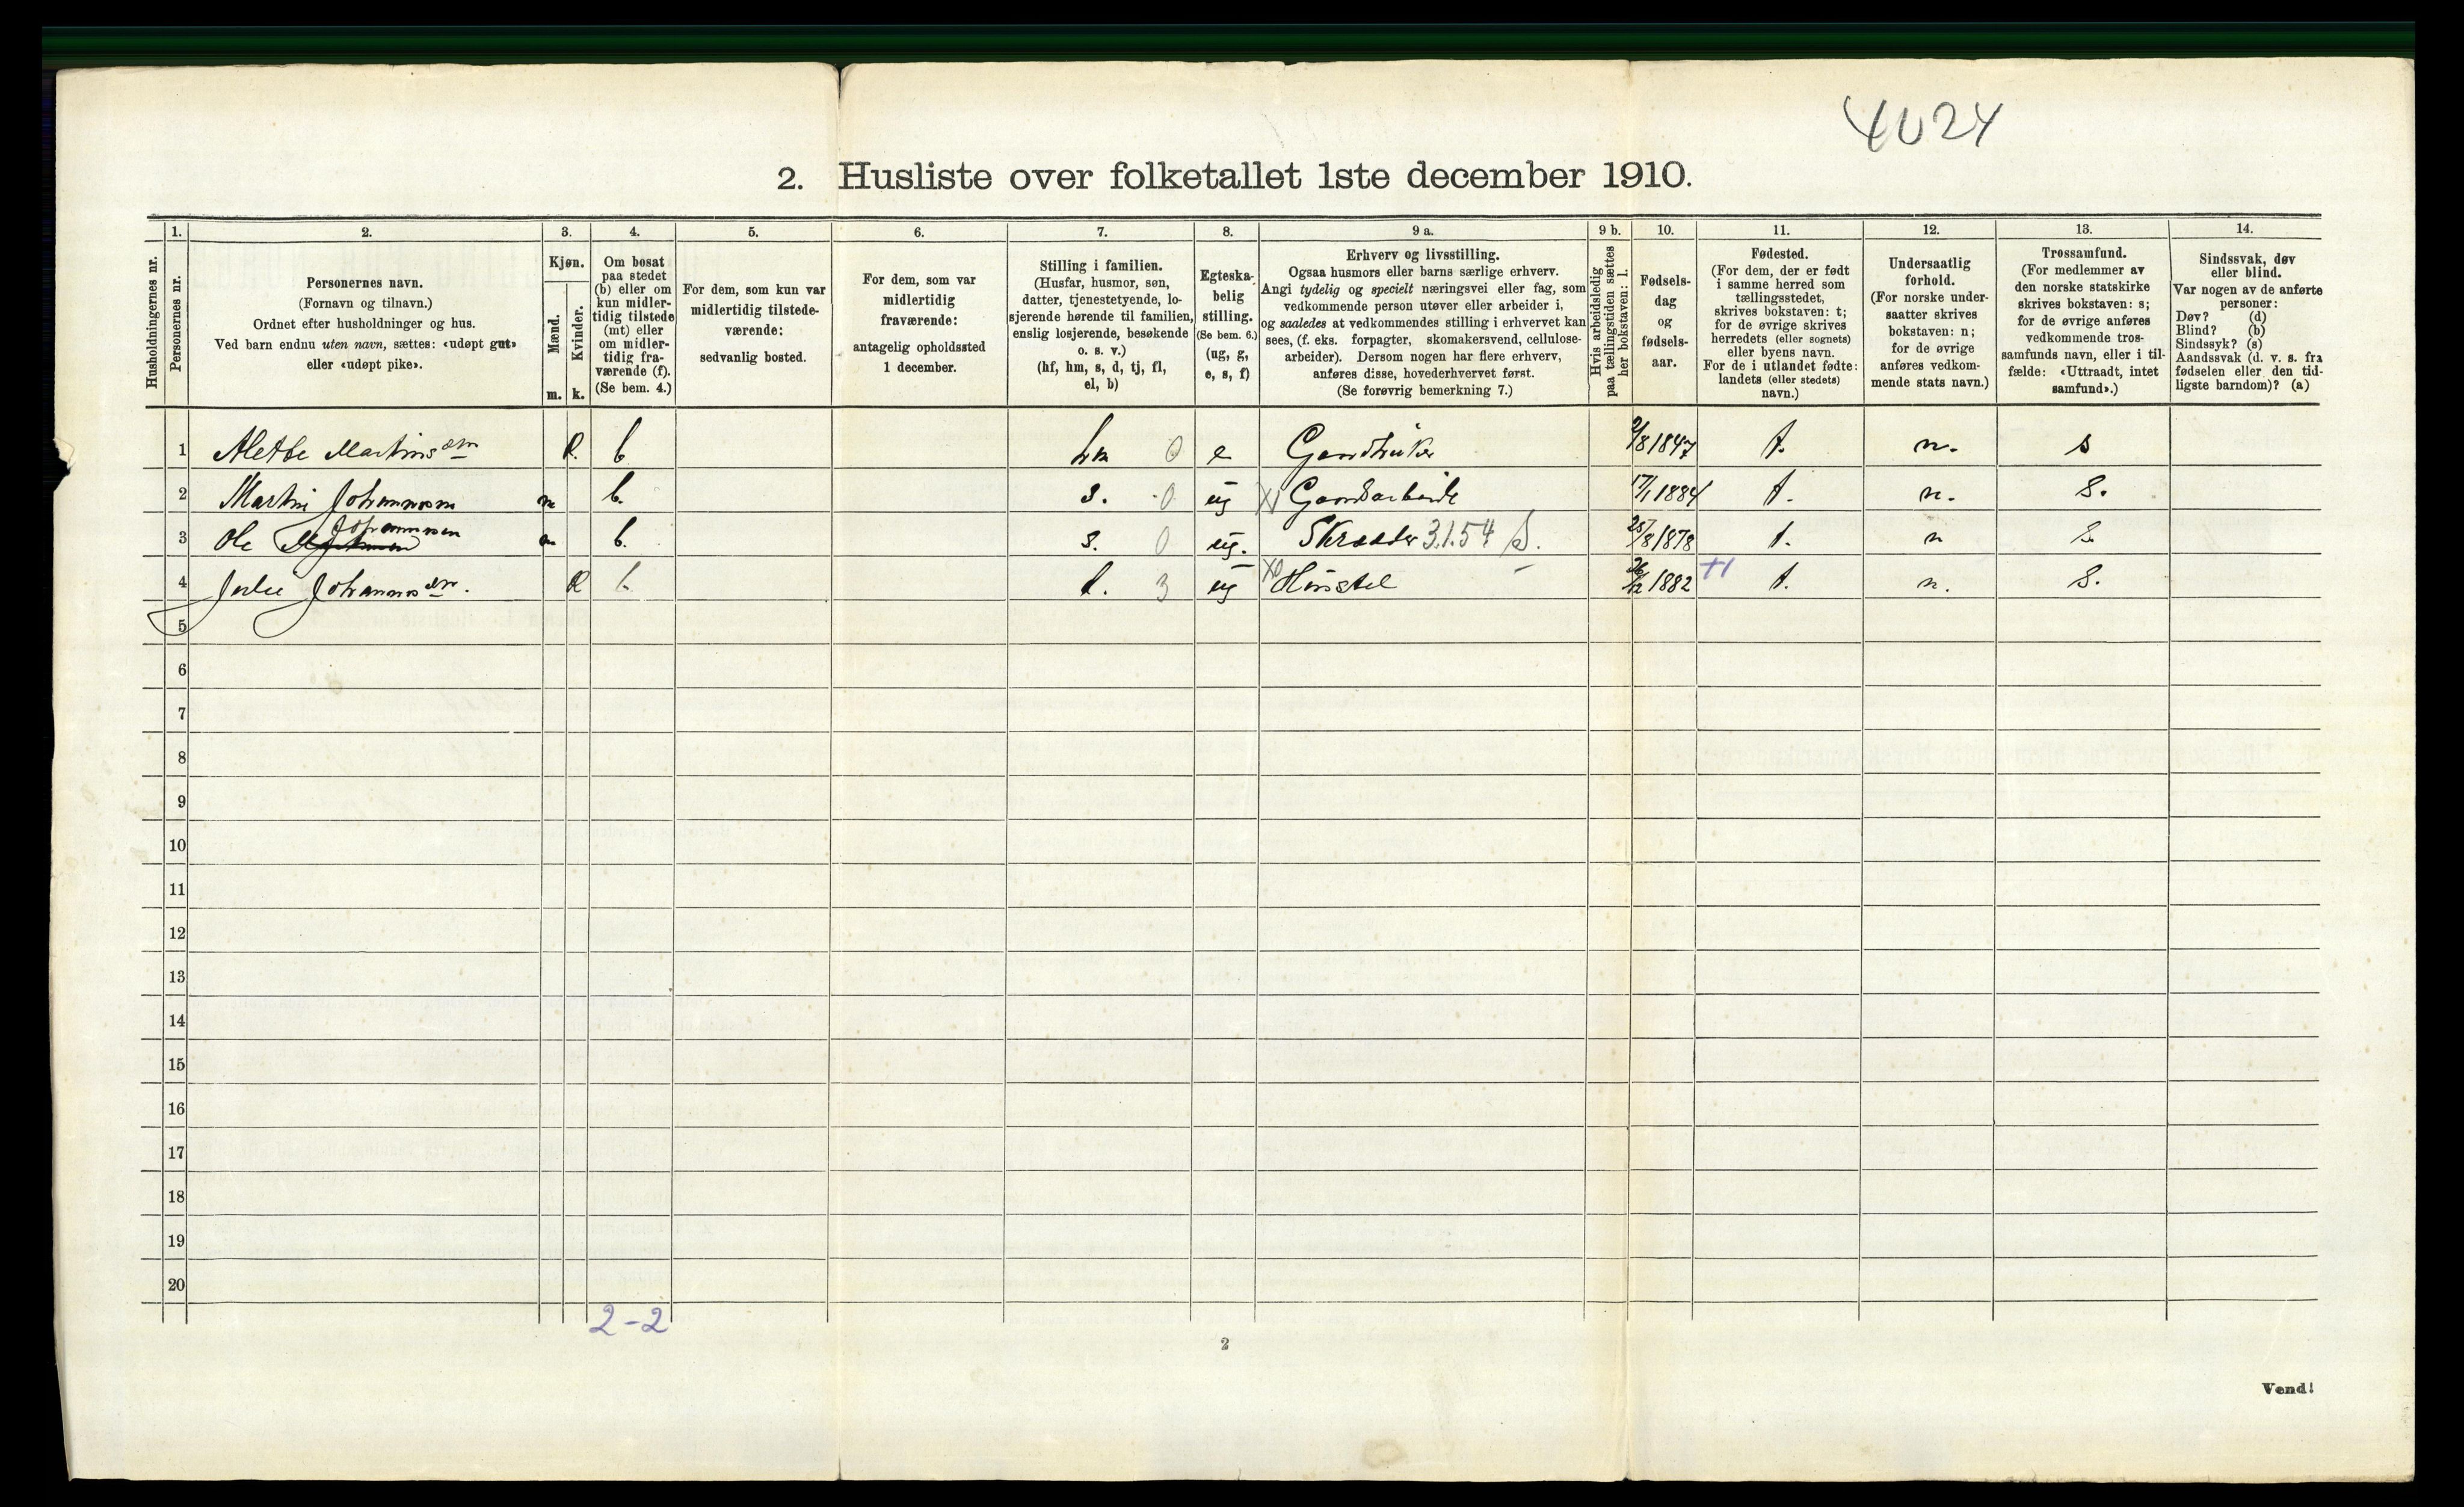 4024
2. Husliste over folketallet 1ste december 1910.
1. 2. 3. 4. 5. 6. 7. 8. 9 a. 9 b. 10. 11. 12. 13. 14.
Husholdningernes nr.
Personernes nr.
Personernes navn.
(Fornavn og tilnavn.)
Ordnet efter husholdninger og hus.
Ved barn endnu uten navn, sættes: «udøpt gut»
eller «udøpt pike».
Kjøn.
Mænd.
Kvinder.
m. k.
Om bosat
paa stedet
(b) eller om
kun midler-
tidig tilstede
(mt) eller
om midler-
tidig fra-
værende (f).
(Se bem. 4.)
For dem, som kun var
midlertidig tilstede-
værende:
sedvanlig bosted.
For dem, som var
midlertidig
fraværende:
antagelig opholdssted
1 december.
Stilling i familien.
(Husfar, husmor, søn,
datter, tjenestetyende, lo-
sjerende hørende til familien,
enslig losjerende, besøkende
o. s. v.)
(hf, hm, s, d, tj, fl,
el, b)
Egteska-
belig
stilling.
(Se bem. 6.)
(ug, g,
e, s, f)
Erhverv og livsstilling.
Ogsaa husmors eller barns særlige erhverv.
Angi tydelig og specielt næringsvei eller fag, som
vedkommende person utøver eller arbeider i,
og saaledes at vedkommendes stilling i erhvervet kan
sees, (f. eks. forpagter, skomakersvend, cellulose-
arbeider). Dersom nogen har flere erhverv,
anføres disse, hovederhvervet først.
(Se forøvrig bemerkning 7.)
Hvis arbeidsledig
paa tællingstiden sættes
her bokstaven: l.
Fødsels-
dag
og
fødsels-
aar.
Fødested.
(For dem, der er født
i samme herred som
tællingsstedet,
skrives bokstaven: t;
for de øvrige skrives
herredets (eller sognets)
eller byens navn.
For de i utlandet fødte:
landets (eller stedets)
navn.)
Undersaatlig
forhold.
(For norske under-
saatter skrives
bokstaven: n;
for de øvrige
anføres vedkom-
mende stats navn.)
Trossamfund.
(For medlemmer av
den norske statskirke
skrives bokstaven: s;
for de øvrige anføres
vedkommende tros-
samfunds navn, eller i til-
fælde: «Uttraadt, intet
samfund».)
Sindssvak, døv
eller blind.
Var nogen av de anførte
personer:
Døv? (d)
Blind? (b)
Sindssyk? (s)
Aandssvak (d. v. s. fra
fødselen eller den tid-
ligste barndom)? (a)
1 Alette Martinsen K b hm 0 e Gaardbruker /8 1847 t. n. s
2 Martin Johannesen m b. s. 0 ug Gaardsarbeide 17/1 1884 t. n. s.
3 Ole Johannesen m b. s. 0 ug. Skrædder 3.1.54 S. 25/8 1878 t. n s.
4 Julie Johannesen. K b t. 3 ug Huustel 26/12 1882 t. n. s.
5
6
7
8
9
10
11
12
13
14
15
16
17
18
19
20
2-2
2
Vend!